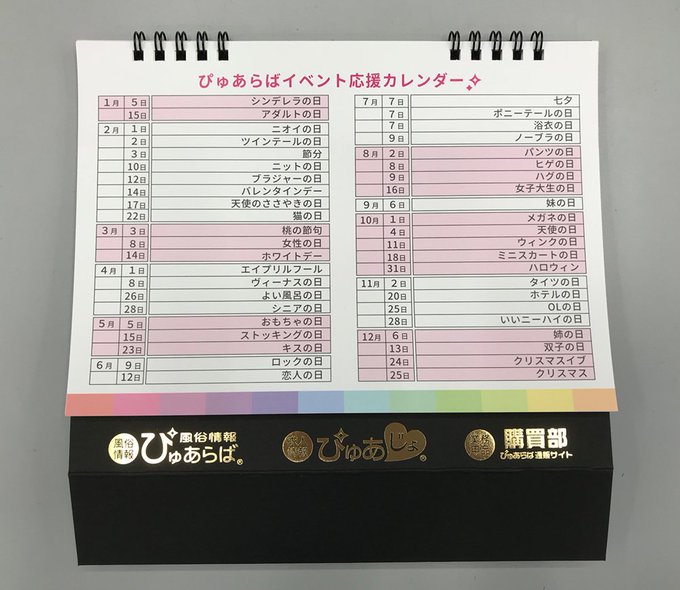 ぴゅあらばイベント応援カレンダー
1月 5日 シンデレラの日
15日 アダルトの日
2月 1日 ニオイの日
2日 ツインテールの日
3日 節分
10日 ニットの日
12日 ブラジャーの日
14日 バレンタインデー
17日 天使のささやきの日
22日 猫の日
3月 3日 桃の節句
8日 女性の日
14日 ホワイトデー
4月 1日 エイプリルフール
8日 ヴィーナスの日
26日 よい風呂の日
28日 シニアの日
5月 5日 おもちゃの日
15日 ストッキングの日
23日 キスの日
6月 9日 ロックの日
12日 恋人の日
7月 7日 七夕
7日 ポニーテールの日
7日 浴衣の日
9日 ノーブラの日
8月 2日 パンツの日
8日 ヒゲの日
9日 ハグの日
16日 女子大生の日
9月 6日 妹の日
10月 1日 メガネの日
4日 天使の日
11日 ウィンクの日
18日 ミニスカートの日
31日 ハロウィン
11月 2日 タイツの日
20日 ホテルの日
25日 OLの日
28日 いいニーハイの日
12月 6日 姉の日
13日 双子の日
24日 クリスマスイブ
25日 クリスマス
風俗情報 風俗情報
ぴゅあらば®
ぴゅあじょ®
購買部
ぴゅあらば通販サイト